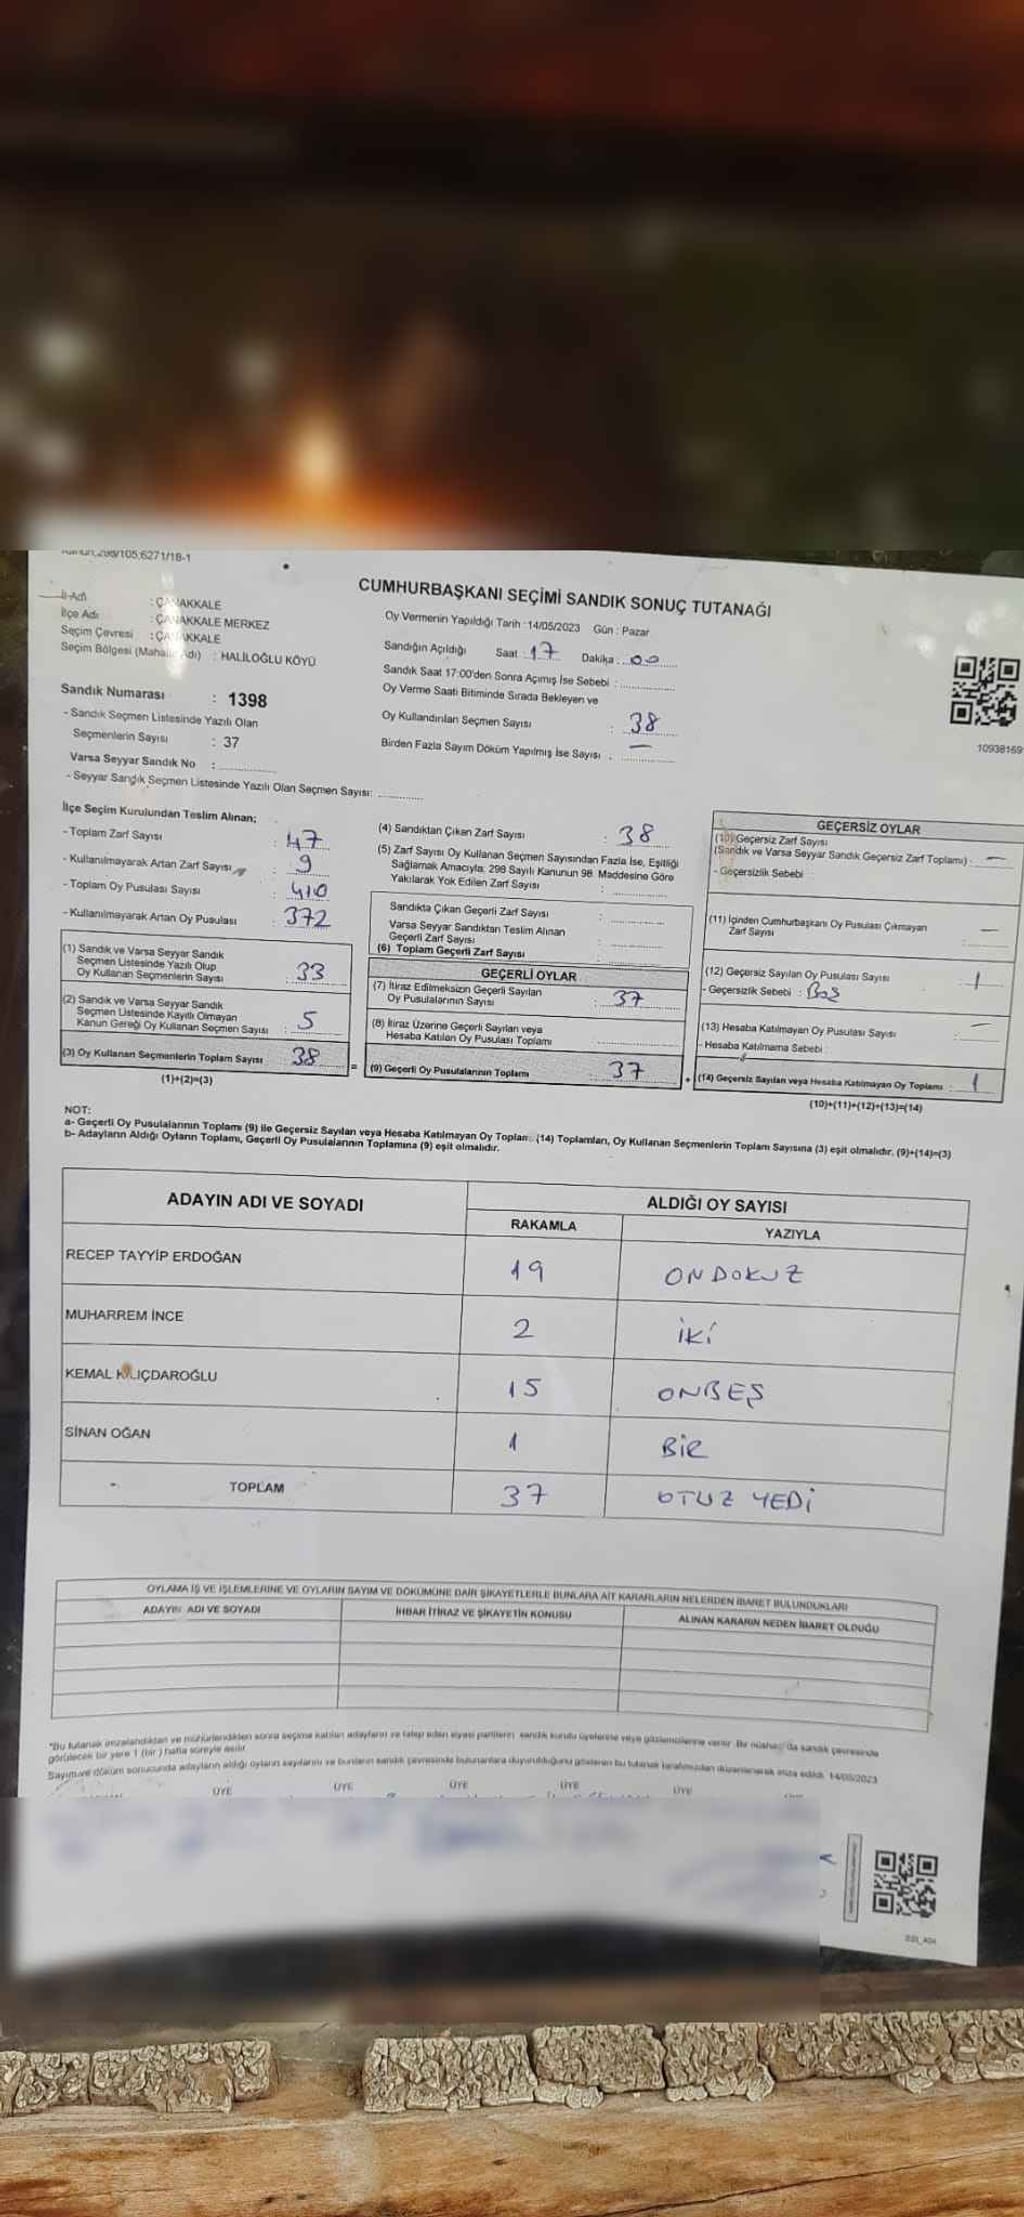 298/105,6271/18-1
CUMHURBAŞKANI SEÇİMİ SANDIK SONUÇ TUTANAĞI
İl Adı : ÇANAKKALE
İlçe Adı : ÇANAKKALE MERKEZ
Seçim Çevresi : ÇANAKKALE
Seçim Bölgesi (Mahalle Adı) : HALİLOĞLU KÖYÜ
Sandık Numarası : 1398
- Sandık Seçmen Listesinde Yazılı Olan
Seçmenlerin Sayısı : 37
Varsa Seyyar Sandık No :
- Seyyar Sandık Seçmen Listesinde Yazılı Olan Seçmen Sayısı:
Oy Vermenin Yapıldığı Tarih : 14/05/2023 Gün : Pazar
Sandığın Açıldığı Saat : 17 Dakika : 00
Sandık Saat 17:00'den Sonra Açımış İse Sebebi :
Oy Verme Saati Bitiminde Sırada Bekleyen ve
Oy Kullandırılan Seçmen Sayısı : 38
Birden Fazla Sayım Döküm Yapılmış İse Sayısı : —
10938169
İlçe Seçim Kurulundan Teslim Alınan;
- Toplam Zarf Sayısı : 47
- Kullanılmayarak Artan Zarf Sayısı : 9
- Toplam Oy Pusulası Sayısı : 410
- Kullanılmayarak Artan Oy Pusulası : 372
(1) Sandık ve Varsa Seyyar Sandık
Seçmen Listesinde Yazılı Olup
Oy Kullanan Seçmenlerin Sayısı : 33
(2) Sandık ve Varsa Seyyar Sandık
Seçmen Listesinde Kayıtlı Olmayan
Kanun Gereği Oy Kullanan Seçmen Sayısı : 5
(3) Oy Kullanan Seçmenlerin Toplam Sayısı 38 =
(1)+(2)=(3)
(4) Sandıktan Çıkan Zarf Sayısı : 38
(5) Zarf Sayısı Oy Kullanan Seçmen Sayısından Fazla İse, Eşitliği
Sağlamak Amacıyla; 298 Sayılı Kanunun 98. Maddesine Göre
Yakılarak Yok Edilen Zarf Sayısı :
Sandıkta Çıkan Geçerli Zarf Sayısı :
Varsa Seyyar Sandıktan Teslim Alınan
Geçerli Zarf Sayısı :
(6) Toplam Geçerli Zarf Sayısı :
GEÇERLİ OYLAR
(7) İtiraz Edilmeksizin Geçerli Sayılan
Oy Pusulalarının Sayısı : 37
(8) İtiraz Üzerine Geçerli Sayılan veya
Hesaba Katılan Oy Pusulası Toplamı :
(9) Geçerli Oy Pusulalarının Toplamı : 37 +
GEÇERSİZ OYLAR
(10) Geçersiz Zarf Sayısı
(Sandık ve Varsa Seyyar Sandık Geçersiz Zarf Toplamı) : —
- Geçersizlik Sebebi :
(11) İçinden Cumhurbaşkanı Oy Pusulası Çıkmayan
Zarf Sayısı : —
(12) Geçersiz Sayılan Oy Pusulası Sayısı : 1
- Geçersizlik Sebebi : BOŞ
(13) Hesaba Katılmayan Oy Pusulası Sayısı : —
- Hesaba Katılmama Sebebi :
(14) Geçersiz Sayılan veya Hesaba Katılmayan Oy Toplamı : 1
(10)+(11)+(12)+(13)=(14)
NOT:
a- Geçerli Oy Pusulalarının Toplamı (9) ile Geçersiz Sayılan veya Hesaba Katılmayan Oy Toplamı (14) Toplamları, Oy Kullanan Seçmenlerin Toplam Sayısına (3) eşit olmalıdır. (9)+(14)=(3)
b- Adayların Aldığı Oyların Toplamı, Geçerli Oy Pusulalarının Toplamına (9) eşit olmalıdır.
ADAYIN ADI VE SOYADI ALDIĞI OY SAYISI
RAKAMLA YAZIYLA
RECEP TAYYİP ERDOĞAN 19 ONDOKUZ
MUHARREM İNCE 2 İKİ
KEMAL KILIÇDAROĞLU 15 ONBEŞ
SİNAN OĞAN 1 BİR
TOPLAM 37 OTUZ YEDİ
OYLAMA İŞ VE İŞLEMLERİNE VE OYLARIN SAYIM VE DÖKÜMÜNE DAİR ŞİKAYETLERLE BUNLARA AİT KARARLARIN NELERDEN İBARET BULUNDUKLARI
ADAYIN ADI VE SOYADI İHBAR İTİRAZ VE ŞİKAYETİN KONUSU ALINAN KARARIN NEDEN İBARET OLDUĞU
"Bu tutanak imzalandıktan ve mühürlendikten sonra seçime katılan adayların ve talep eden siyasi partilerin sandık kurulu üyelerine veya gözlemcilerine verilir. Bir nüshası da sandık çevresinde
görülecek bir yere 1 (bir) hafta süreyle asılır.
Sayım ve döküm sonucunda adayların aldığı oyların sayılarını ve bunların sandık çevresinde bulunanlara duyurulduğunu gösteren bu tutanak tarafımızdan düzenlenerek imza edildi. 14/05/2023
ÜYE ÜYE ÜYE ÜYE ÜYE